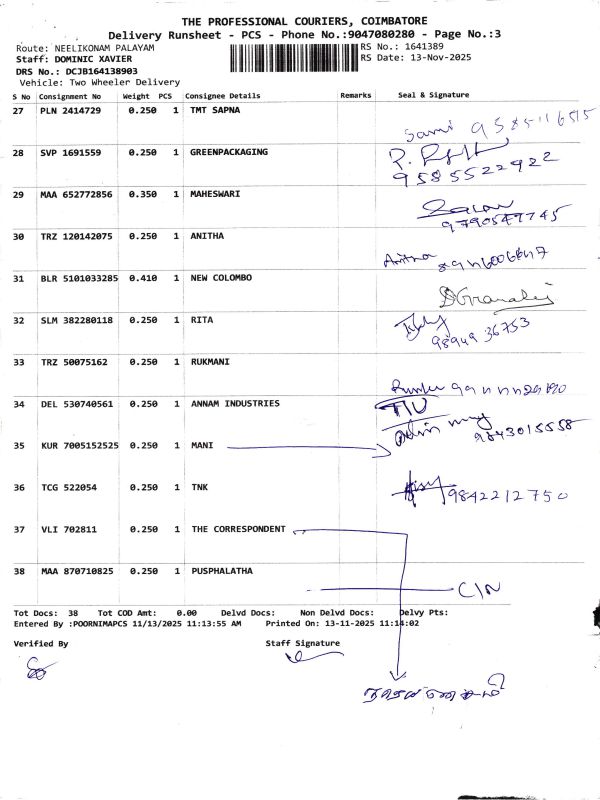 THE PROFESSIONAL COURIERS, COIMBATORE
Delivery Runsheet - PCS - Phone No.:9047080280 - Page No.:3
Route: NEELIKONAM PALAYAM
RS No.: 1641389
Staff: DOMINIC XAVIER
RS Date: 13-Nov-2025
DRS No.: DCJB164138903
Vehicle: Two Wheeler Delivery
S No Consignment No Weight PCS Consignee Details Remarks Seal & Signature
27 PLN 2414729 0.250 1 TMT SAPNA
28 SVP 1691559 0.250 1 GREENPACKAGING
9585522922
29 MAA 652772856 0.350 1 MAHESWARI
9790549745
30 TRZ 120142075 0.250 1 ANITHA
Anitha
31 BLR 5101033285 0.410 1 NEW COLOMBO
32 SLM 382280118 0.250 1 RITA
98949 36753
33 TRZ 50075162 0.250 1 RUKMANI
34 DEL 530740561 0.250 1 ANNAM INDUSTRIES
9843015558
35 KUR 7005152525 0.250 1 MANI
36 TCG 522054 0.250 1 TNK
9842212750
37 VLI 702811 0.250 1 THE CORRESPONDENT
38 MAA 870710825 0.250 1 PUSPHALATHA
C/N
Tot Docs: 38 Tot COD Amt: 0.00 Delvd Docs: Non Delvd Docs: Delvy Pts:
Entered By :POORNIMAPCS 11/13/2025 11:13:55 AM Printed On: 13-11-2025 11:14:02
Verified By Staff Signature